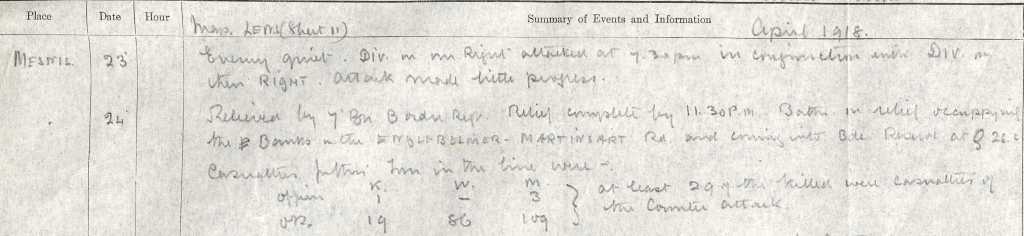 Place Date Hour Summary of Events and Information
Map. LENS (Sheet 11) April 1918.
MESNIL 23 Enemy quiet. Div. on our Right attacked at 7.30pm in conjunction with DIV. on
their RIGHT. Attack made little progress.
24 Relieved by 7 Bn Border Regt. Relief complete by 11.30P.M. Battn on relief occupying
the Banks in the ENGLEBELMER - MARTINSART Rd. and coming into Bde Reserve at Q 26.c
Casualties this in the line were -
K. W. M.
Officers 1 - 3 at least 29 of the killed were casualties of
O.R. 19 86 109 the Counter attack.